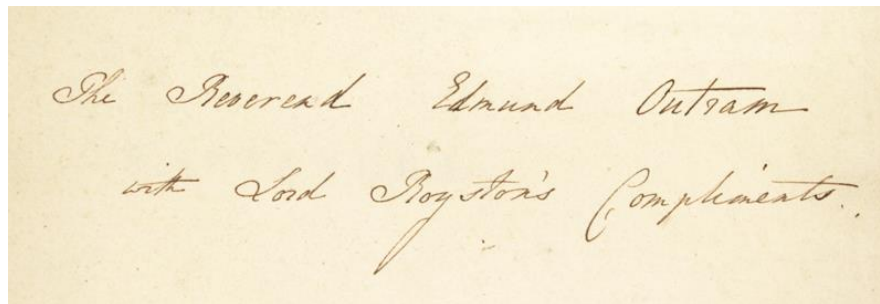 The Reverend Edmund Outram
with Lord Royston's Compliments.